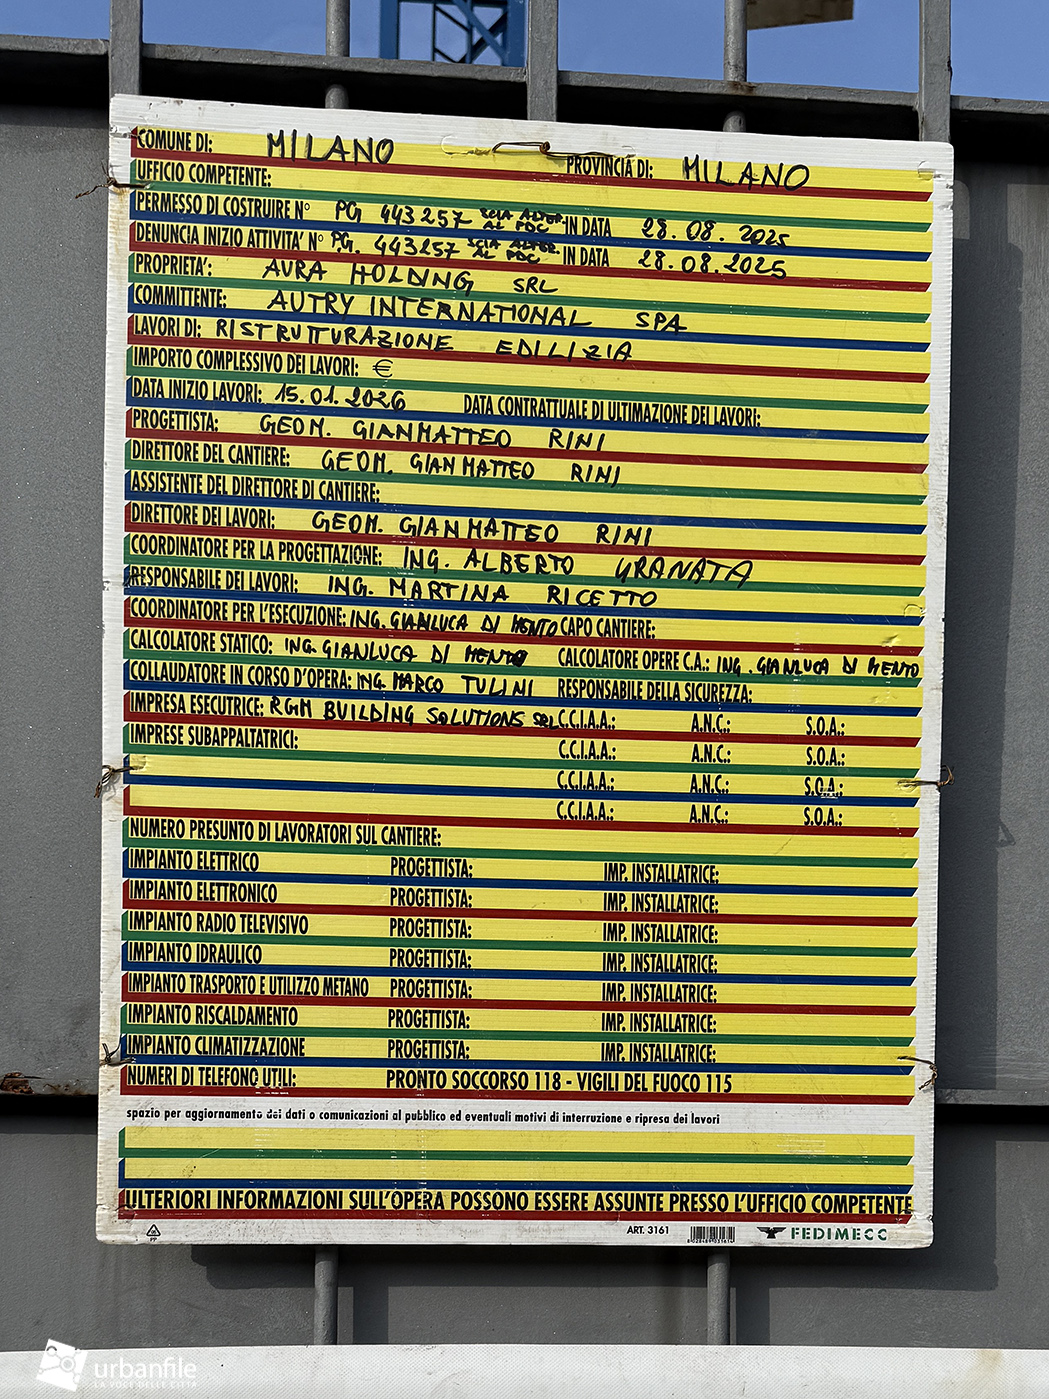 COMUNE DI: MILANO PROVINCIA DI: MILANO
UFFICIO COMPETENTE:
PERMESSO DI COSTRUIRE N° PG 443257 SCIA ALTER. AL PDC IN DATA 28.08.2025
DENUNCIA INIZIO ATTIVITA' N° PG. 443257 SCIA ALTER. AL PDC IN DATA 28.08.2025
PROPRIETA': AURA HOLDING SRL
COMMITTENTE: AUTRY INTERNATIONAL SPA
LAVORI DI: RISTRUTTURAZIONE EDILIZIA
IMPORTO COMPLESSIVO DEI LAVORI: €
DATA INIZIO LAVORI: 15.01.2026 DATA CONTRATTUALE DI ULTIMAZIONE DEI LAVORI:
PROGETTISTA: GEOM. GIANMATTEO RINI
DIRETTORE DEL CANTIERE: GEOM. GIANMATTEO RINI
ASSISTENTE DEL DIRETTORE DI CANTIERE:
DIRETTORE DEI LAVORI: GEOM. GIANMATTEO RINI
COORDINATORE PER LA PROGETTAZIONE: ING. ALBERTO GRANATA
RESPONSABILE DEI LAVORI: ING. MARTINA RICETTO
COORDINATORE PER L'ESECUZIONE: ING. GIANLUCA DI MENTO CAPO CANTIERE:
CALCOLATORE STATICO: ING. GIANLUCA DI MENTO CALCOLATORE OPERE C.A.: ING. GIANLUCA DI MENTO
COLLAUDATORE IN CORSO D'OPERA: ING. MARCO TULINI RESPONSABILE DELLA SICUREZZA:
IMPRESA ESECUTRICE: RGM BUILDING SOLUTIONS SRL C.C.I.A.A.: A.N.C.: S.O.A.:
IMPRESE SUBAPPALTATRICI: C.C.I.A.A.: A.N.C.: S.O.A.:
C.C.I.A.A.: A.N.C.: S.O.A.:
C.C.I.A.A.: A.N.C.: S.O.A.:
NUMERO PRESUNTO DI LAVORATORI SUL CANTIERE:
IMPIANTO ELETTRICO PROGETTISTA: IMP. INSTALLATRICE:
IMPIANTO ELETTRONICO PROGETTISTA: IMP. INSTALLATRICE:
IMPIANTO RADIO TELEVISIVO PROGETTISTA: IMP. INSTALLATRICE:
IMPIANTO IDRAULICO PROGETTISTA: IMP. INSTALLATRICE:
IMPIANTO TRASPORTO E UTILIZZO METANO PROGETTISTA: IMP. INSTALLATRICE:
IMPIANTO RISCALDAMENTO PROGETTISTA: IMP. INSTALLATRICE:
IMPIANTO CLIMATIZZAZIONE PROGETTISTA: IMP. INSTALLATRICE:
NUMERI DI TELEFONO UTILI: PRONTO SOCCORSO 118 - VIGILI DEL FUOCO 115
spazio per aggiornamento dei dati o comunicazioni al pubblico ed eventuali motivi di interruzione e ripresa dei lavori
ULTERIORI INFORMAZIONI SULL'OPERA POSSONO ESSERE ASSUNTE PRESSO L'UFFICIO COMPETENTE
PP ART. 3161 FEDIMECC
urbanfile
LA VOCE DELLE CITTÀ